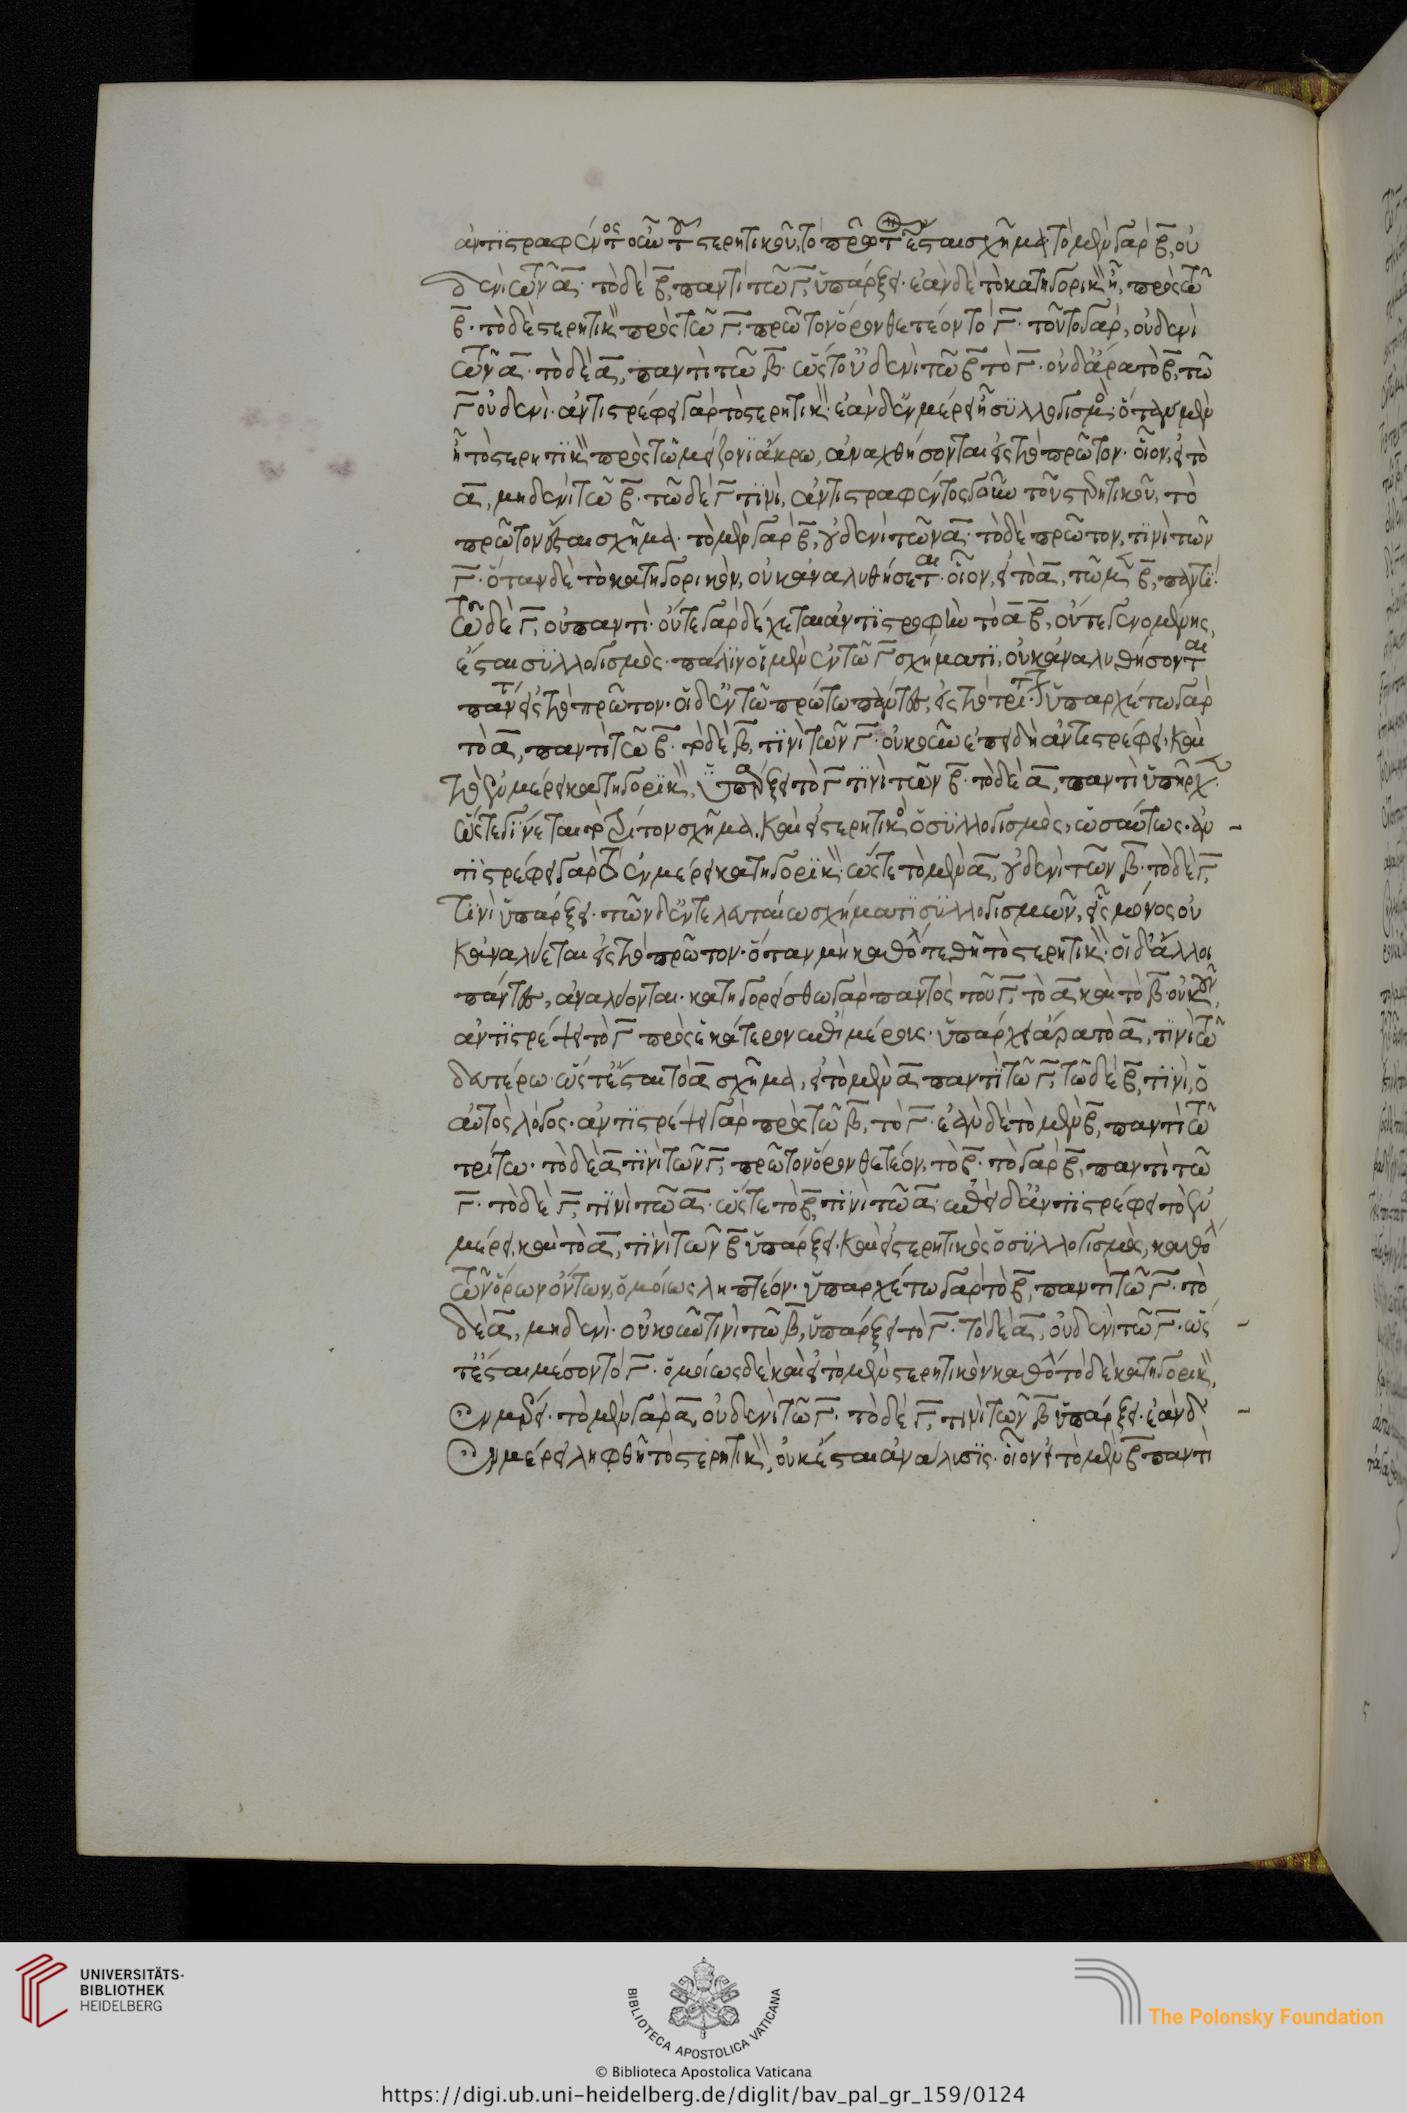 ἀντιστραφέντος οὖν τοῦ στερητικοῦ, τὸ πρῶτον ἔσται σχῆμα· τὸ μὲν γὰρ β, οὐ
δενὶ τῶν α· τὸ δὲ β, παντὶ τῶ γ, ὑπάρξει· ἐὰν δὲ τὸ κατηγορικὸν ἦ, πρὸς τῶ
β· τὸ δὲ στερητικὸν πρὸς τῶ γ, πρῶτον ὅρον θετέον τὸ γ· τοῦτο γὰρ, οὐδενὶ
τῶν α· τὸ δὲ α, παντὶ τῶ β· ὥστ' οὐδενὶ τῶ β τὸ γ· οὐδ' ἄρα τὸ β, τῶ
γ οὐδενί· ἀντιστρέφει γὰρ τὸ στερητικόν· ἐὰν δ' ἐν μέρει ἦ συλλογισμός· ὅταν μὲν
ἦ τὸ στερητικὸν πρὸς τῶ μείζονι ἄκρω, ἀναχθήσονται εἰς τὸ πρῶτον· οἷον, εἰ τὸ
α, μηδενὶ τῶ β· τῶ δὲ γ τινὶ, ἀντιστραφέντος γὰρ τοῦ στερητικοῦ, τὸ
πρῶτον ἔσται σχῆμα· τὸ μὲν γὰρ β, οὐδενὶ τῶν α· τὸ δὲ πρῶτον, τινὶ τῶν
γ· ὅταν δὲ τὸ κατηγορικὸν, οὐκ ἀναλυθήσεται· οἷον, εἰ τὸ α, τῶ μὲν β, παντί·
τῶ δὲ γ, οὐ παντί· οὔτε γὰρ δέχεται ἀντιστροφὴν τὸ α β, οὔτε γενομένης,
ἔσται συλλογισμός· πάλιν οἱ μὲν ἐν τῶ γ σχήματι, οὐκ ἀναλυθήσονται
πάντες εἰς τὸ πρῶτον· οἱ δ' ἐν τῶ πρώτω πάντες, εἰς τὸ τρίτον· ὑπαρχέτω γὰρ
τὸ α, παντὶ τῶ β· τὸ δὲ β, τινὶ τῶν γ· οὐκοῦν ἐπειδὴ ἀντιστρέφει· καὶ
τὸ ἐν μέρει κατηγορικὸν, ὑπάρξει τὸ γ τινὶ τῶν β· τὸ δὲ α, παντὶ ὑπῆρχεν·
ὥστε γίνεται τὸ τρίτον σχῆμα, καὶ εἰ στερητικὸς ὁ συλλογισμός, ὡσαύτως· ἀν
τιστρέφει γὰρ τὸ ἐν μέρει κατηγορικόν· ὥστε τὸ μὲν α, οὐδενὶ τῶν β· τὸ δὲ γ,
τινὶ ὑπάρξει· τῶν δ' ἐν τελευταίω σχήματι συλλογισμῶν, εἷς μόνος οὐ
κ ἀναλύεται εἰς τὸ πρῶτον· ὅταν μὴ καθόλου τεθῆ τὸ στερητικόν· οἱ δ' ἄλλοι
πάντες, ἀναλύονται· κατηγορείσθω γὰρ παντὸς τοῦ γ, τὸ α καὶ τὸ β· οὐκοῦν
ἀντιστρέψει τὸ γ πρὸς ἑκάτερον ἐπὶ μέρους· ὑπάρχει ἄρα τὸ α, τινὶ τῶ
δευτέρω· ὥστ' ἔσται τὸ α σχῆμα, εἰ τὸ μὲν α παντὶ τῶ γ, τῶ δὲ β, τινὶ, ὁ
αὐτὸς λόγος· ἀντιστρέψει γὰρ πρὸς τῶ β, τὸ γ· ἐὰν δὲ τὸ μὲν β, παντὶ τῶ
τρίτω· τὸ δὲ α τινὶ τῶν γ, πρῶτον ὅρον θετέον, τὸ β· τὸ γὰρ β, παντὶ τῶ
γ· τὸ δὲ γ, τινὶ τῶ α· ὥστε τὸ β, τινὶ τῶ α· ἐπεὶ δ' ἀντιστρέφει τὸ ἐν
μέρει, καὶ τὸ α, τινὶ τῶν β ὑπάρξει· καὶ εἰ στερητικὸς ὁ συλλογισμός, καθόλου
τῶν ὅρων ὄντων, ὁμοίως ληπτέον· ὑπαρχέτω γὰρ τὸ β, παντὶ τῶ γ· τὸ
δὲ α, μηδενί· οὐκοῦν τινὶ τῶ β, ὑπάρξει τὸ γ· τὸ δὲ α, οὐδενὶ τῶ γ· ὥς
τ' ἔσται μέσον τὸ γ· ὁμοίως δὲ καὶ εἰ τὸ μὲν στερητικὸν καθόλου τὸ δὲ κατηγορικὸν,
ἐν μέρει· τὸ μὲν γὰρ α, οὐδενὶ τῶ γ· τὸ δὲ γ, τινὶ τῶν β ὑπάρξει· ἐὰν δ'
ἐν μέρει ληφθῆ τὸ στερητικὸν, οὐκ ἔσται ἀνάλυσις· οἷον εἰ τὸ μὲν β παντὶ
UNIVERSITÄTS-
BIBLIOTHEK
HEIDELBERG
BIBLIOTECA APOSTOLICA VATICANA
The Polonsky Foundation
© Biblioteca Apostolica Vaticana
https://digi.ub.uni-heidelberg.de/diglit/bav_pal_gr_159/0124